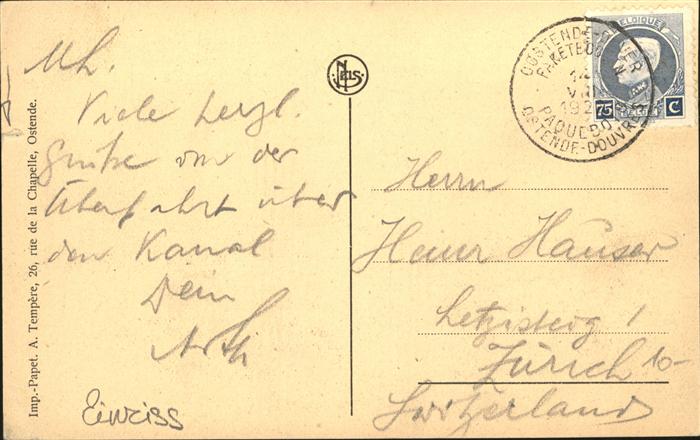 Mh.
Viele herzl.
Grüße von der
Überfahrt über
den Kanal
Dein
Imp.-Papet. A. Tempère, 26, rue de la Chapelle, Ostende.
NELS
OOSTENDE-DOVER
PAKETBOOTEN
14
VIII
192
PAQUEBOTS
OSTENDE-DOUVRES
BELGIQUE
75 C
Herrn
Heinr Hauser
Letzisteig 1
Zürich 10-
Switzerland